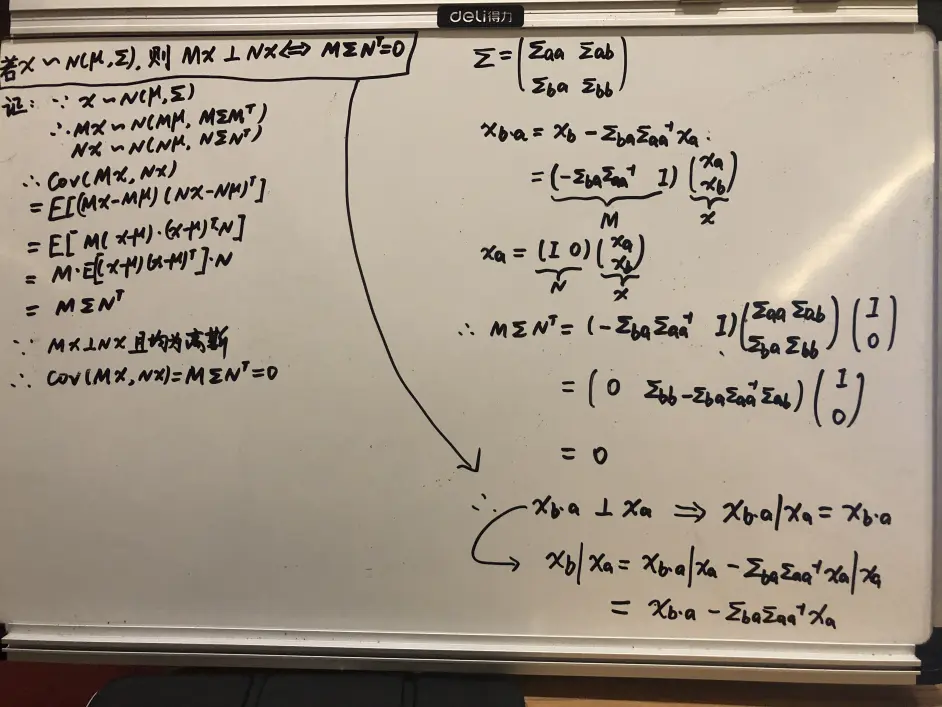 deli得力
若x ~ N(μ,Σ), 则 Mx ⊥ Nx ⟺ MΣNᵀ=0
证: ∵ x ~ N(μ,Σ)
∴ Mx ~ N(Mμ, MΣMᵀ)
Nx ~ N(Nμ, NΣNᵀ)
∴ Cov(Mx, Nx)
= E[(Mx-Mμ)(Nx-Nμ)ᵀ]
= E[M(x-μ)·(x-μ)ᵀN]
= M·E[(x-μ)(x-μ)ᵀ]·N
= MΣNᵀ
∵ Mx⊥Nx 且均为高斯
∴ Cov(Mx, Nx)=MΣNᵀ=0
Σ = (Σaa Σab
Σba Σbb)
x_b·a = x_b - Σba Σaa⁻¹ x_a.
= (-Σba Σaa⁻¹ I) (x_a
x_b)
M x
x_a = (I 0) (x_a
x_b)
N x
∴ MΣNᵀ = (-Σba Σaa⁻¹ I) (Σaa Σab
Σba Σbb) (I
0)
= (0 Σbb-Σba Σaa⁻¹ Σab) (I
0)
= 0
∴ x_b·a ⊥ x_a ⟹ x_b·a|x_a = x_b·a
x_b|x_a = x_b·a|x_a - Σba Σaa⁻¹ x_a|x_a
= x_b·a - Σba Σaa⁻¹ x_a